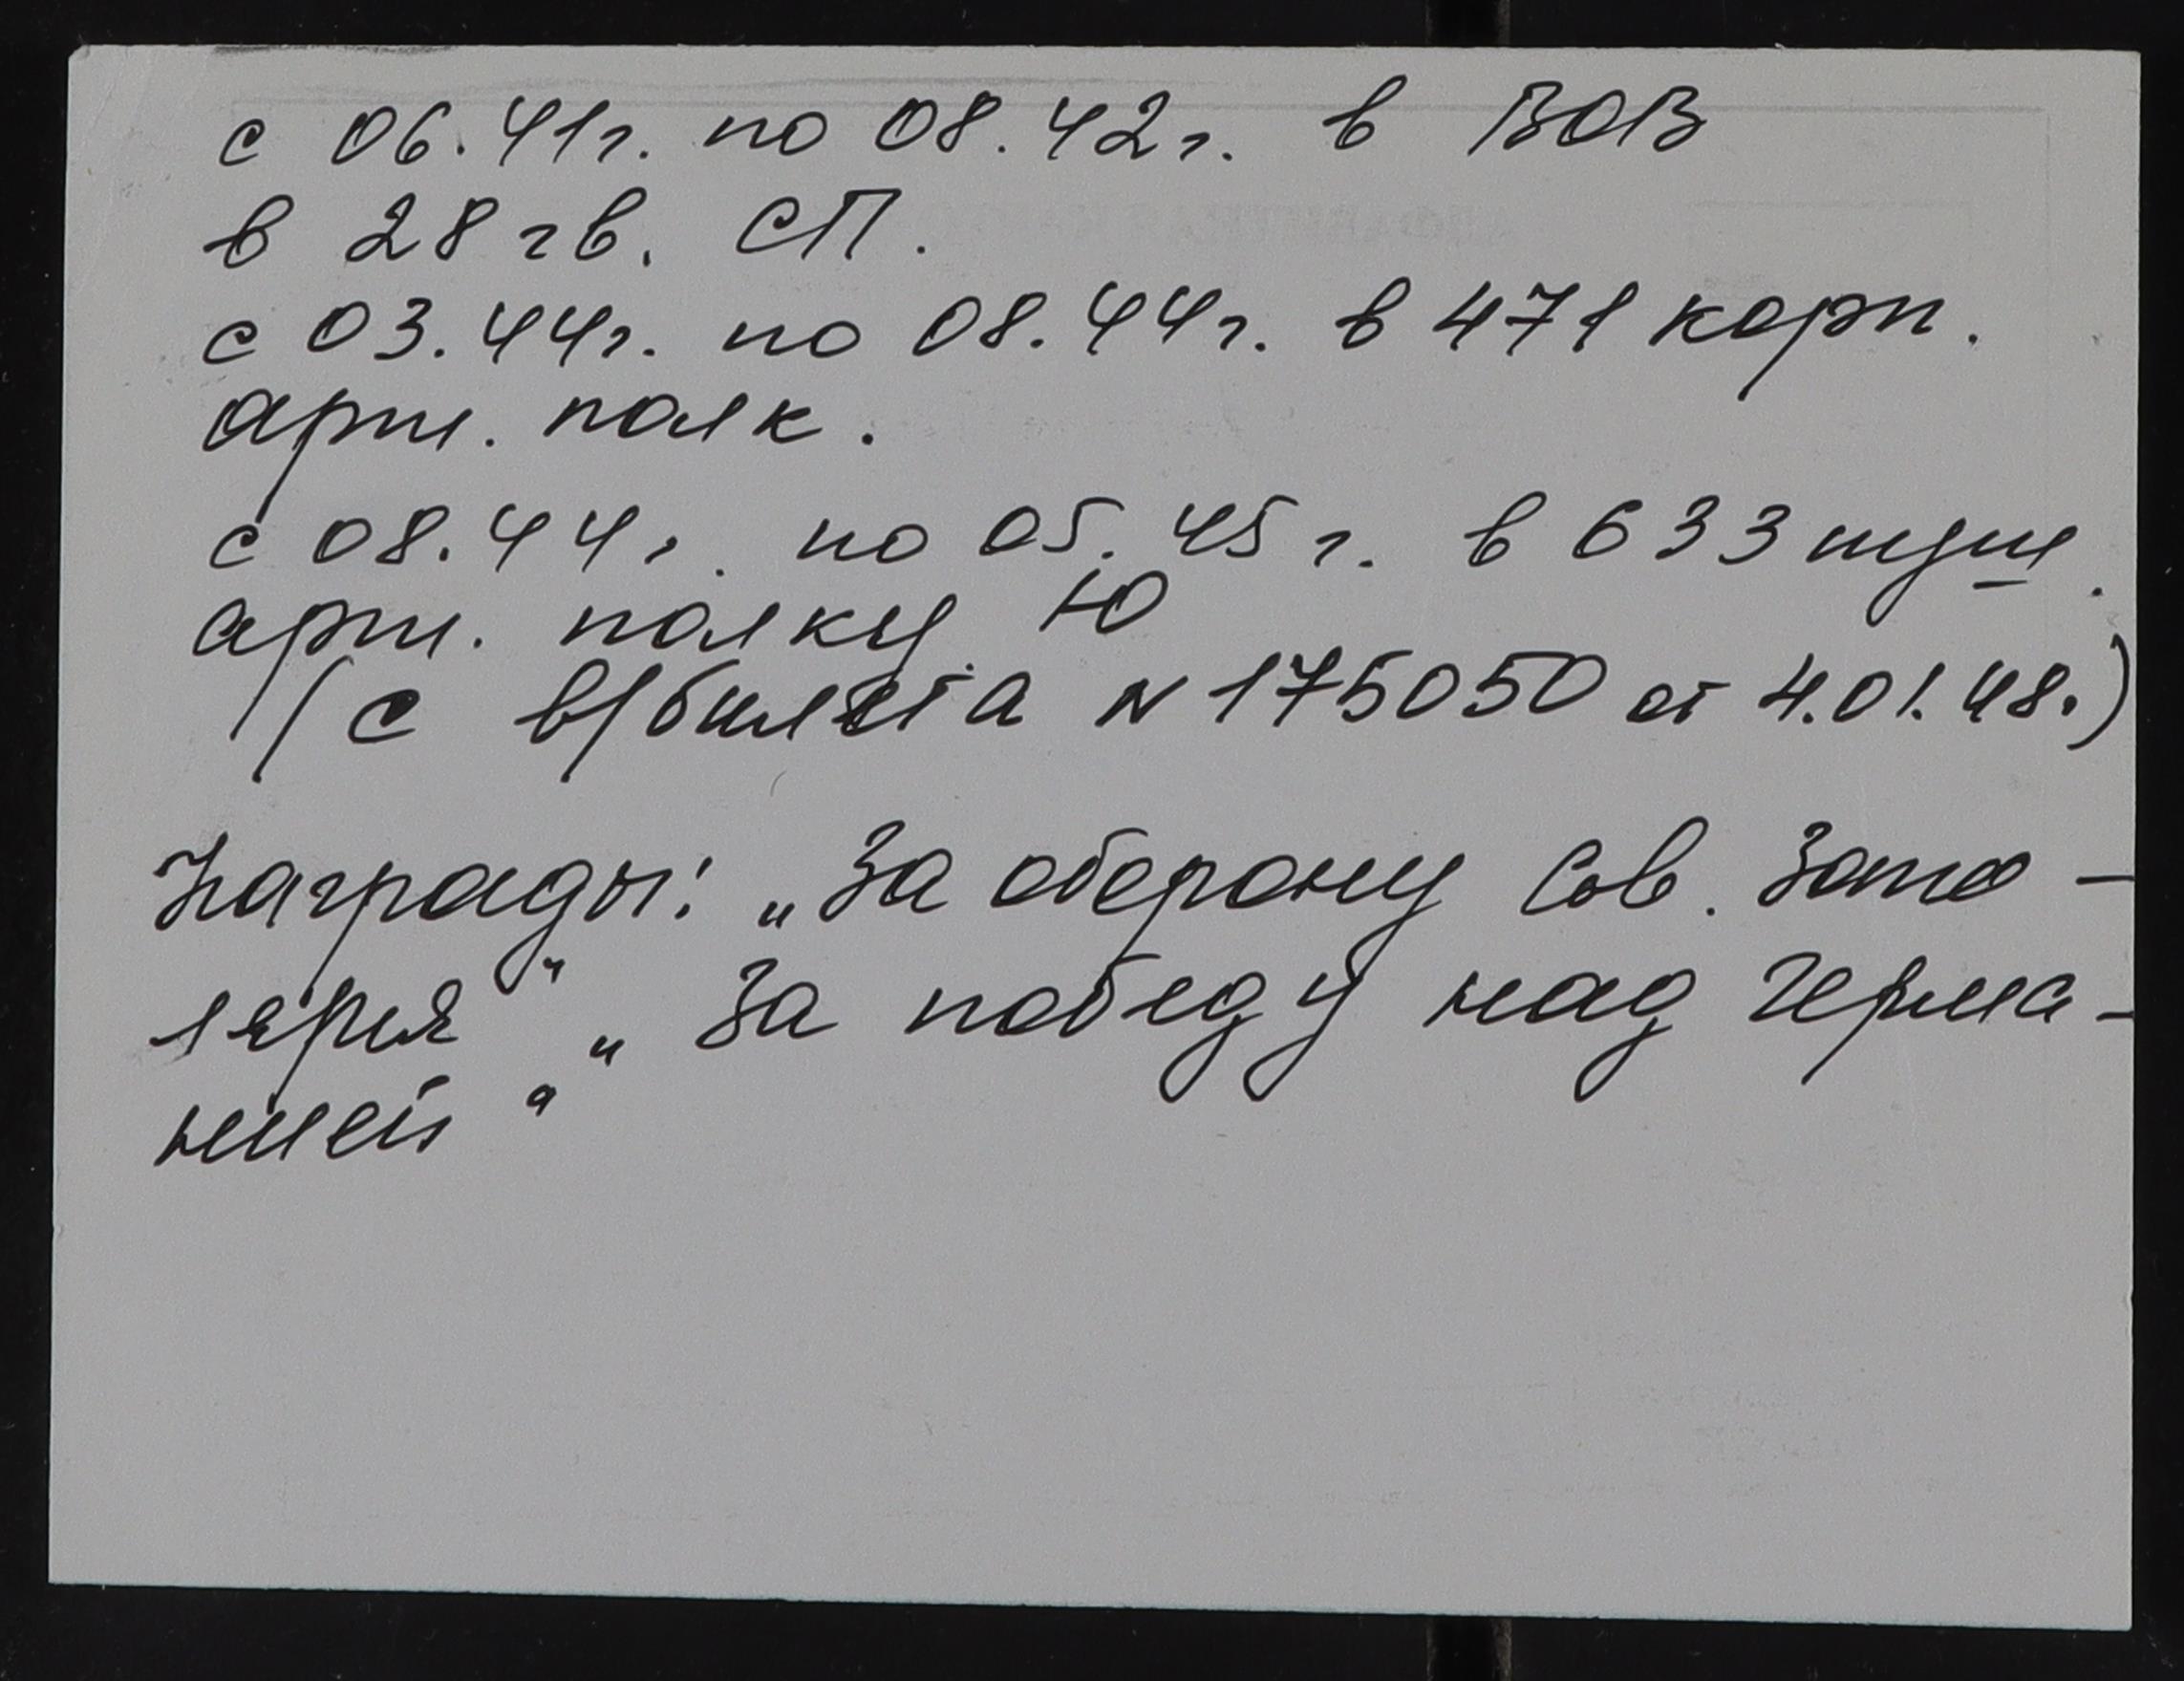 с 06.41г. по 08.42г. в ВОВ
в 28 гв. СП.
с 03.44г. по 08.44г. в 471 корп.
арт. полк.
с 08.44г. по 05.45г. в 633 пуш.
арт. полку Ю
(с в/билета N 175050 от 4.01.48.)
Награды: „За оборону Сов. Запо-
лярья" „За победу над Герма-
нией"